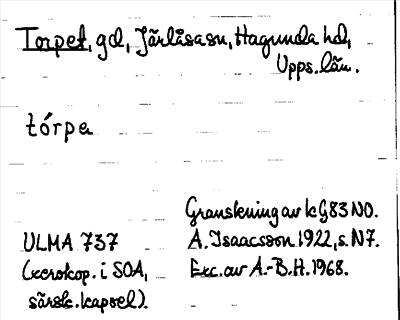 Torpet, gd, Järlåsasn, Hagunda hd,
Upps. län.
tórpa
Granskning av k G83 NO.
ULMA 737
A. Isaacsson 1922, s. N7.
(xerokop. i SOA,
Exc. av A.-B. H. 1968.
särsk. kapsel).